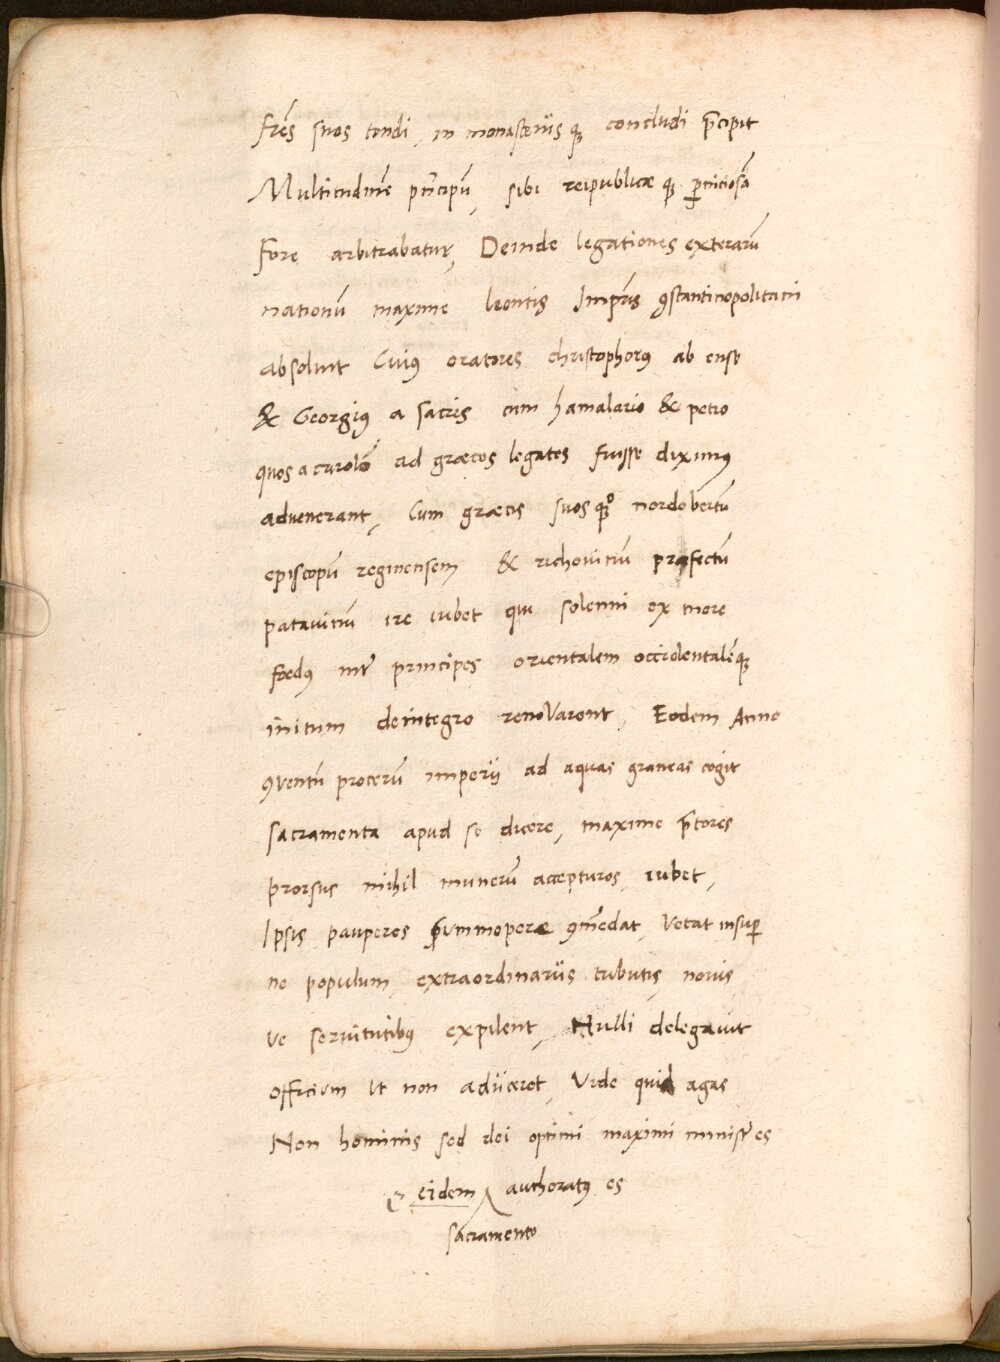 fr̃es suos tondi, in monasteriis q; concludi p̃cipit
Multitudinẽ prĩcipũ, sibi reipublicæ q; ꝑniciosã
fore arbitrabatur, Deinde legationes exterarũ
nationũ maxime leontis Impr̃is ꝯstantinopolitani
absoluit Cuiꝰ oratores christophorꝰ ab ense
& Georgiꝰ a sacris cum hamalario & petro
quos a carolo ad græcos legatos fuisse diximꝰ
aduenerant, Cum græcis suos q;° nordobertũ
episcopũ reginensem & richouinũ præfectũ
patauinũ ire iubet qui solenni ex more
fœdꝰ int̃ principes orientalem occidentalẽq;
initum deintegro renoVaront, Eodem Anno
ꝯVentũ procerũ imperii ad aquas graneas cogit
sacramenta apud se dicere, maxime p̃tores
prorsus nihil munerũ accepturos iubet,
Ipsis pauperes summopere ꝯmẽdat, Vetat insuꝑ
ne populum extraordinariis tributis, nouis
ve seruitutibꝰ expilent, Nulli delegauit
officium Ut non adiiceret, Vide quid agas
Non hominis sed dei optimi maximi minist̃ es
eidem authoratꝰ es
sacramento